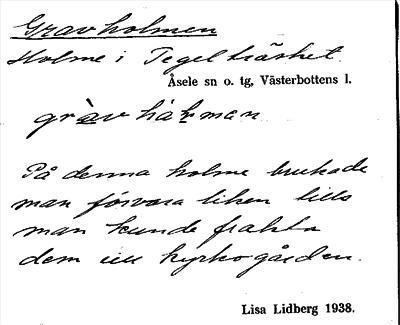 Gravholmen
Holme i Tegelträsket.
Åsele sn o. tg, Västerbottens l.
gràv hà man
På denna holme brukade
man förvara liken tills
man kunde frakta
dem till kyrkogården.
Lisa Lidberg 1938.